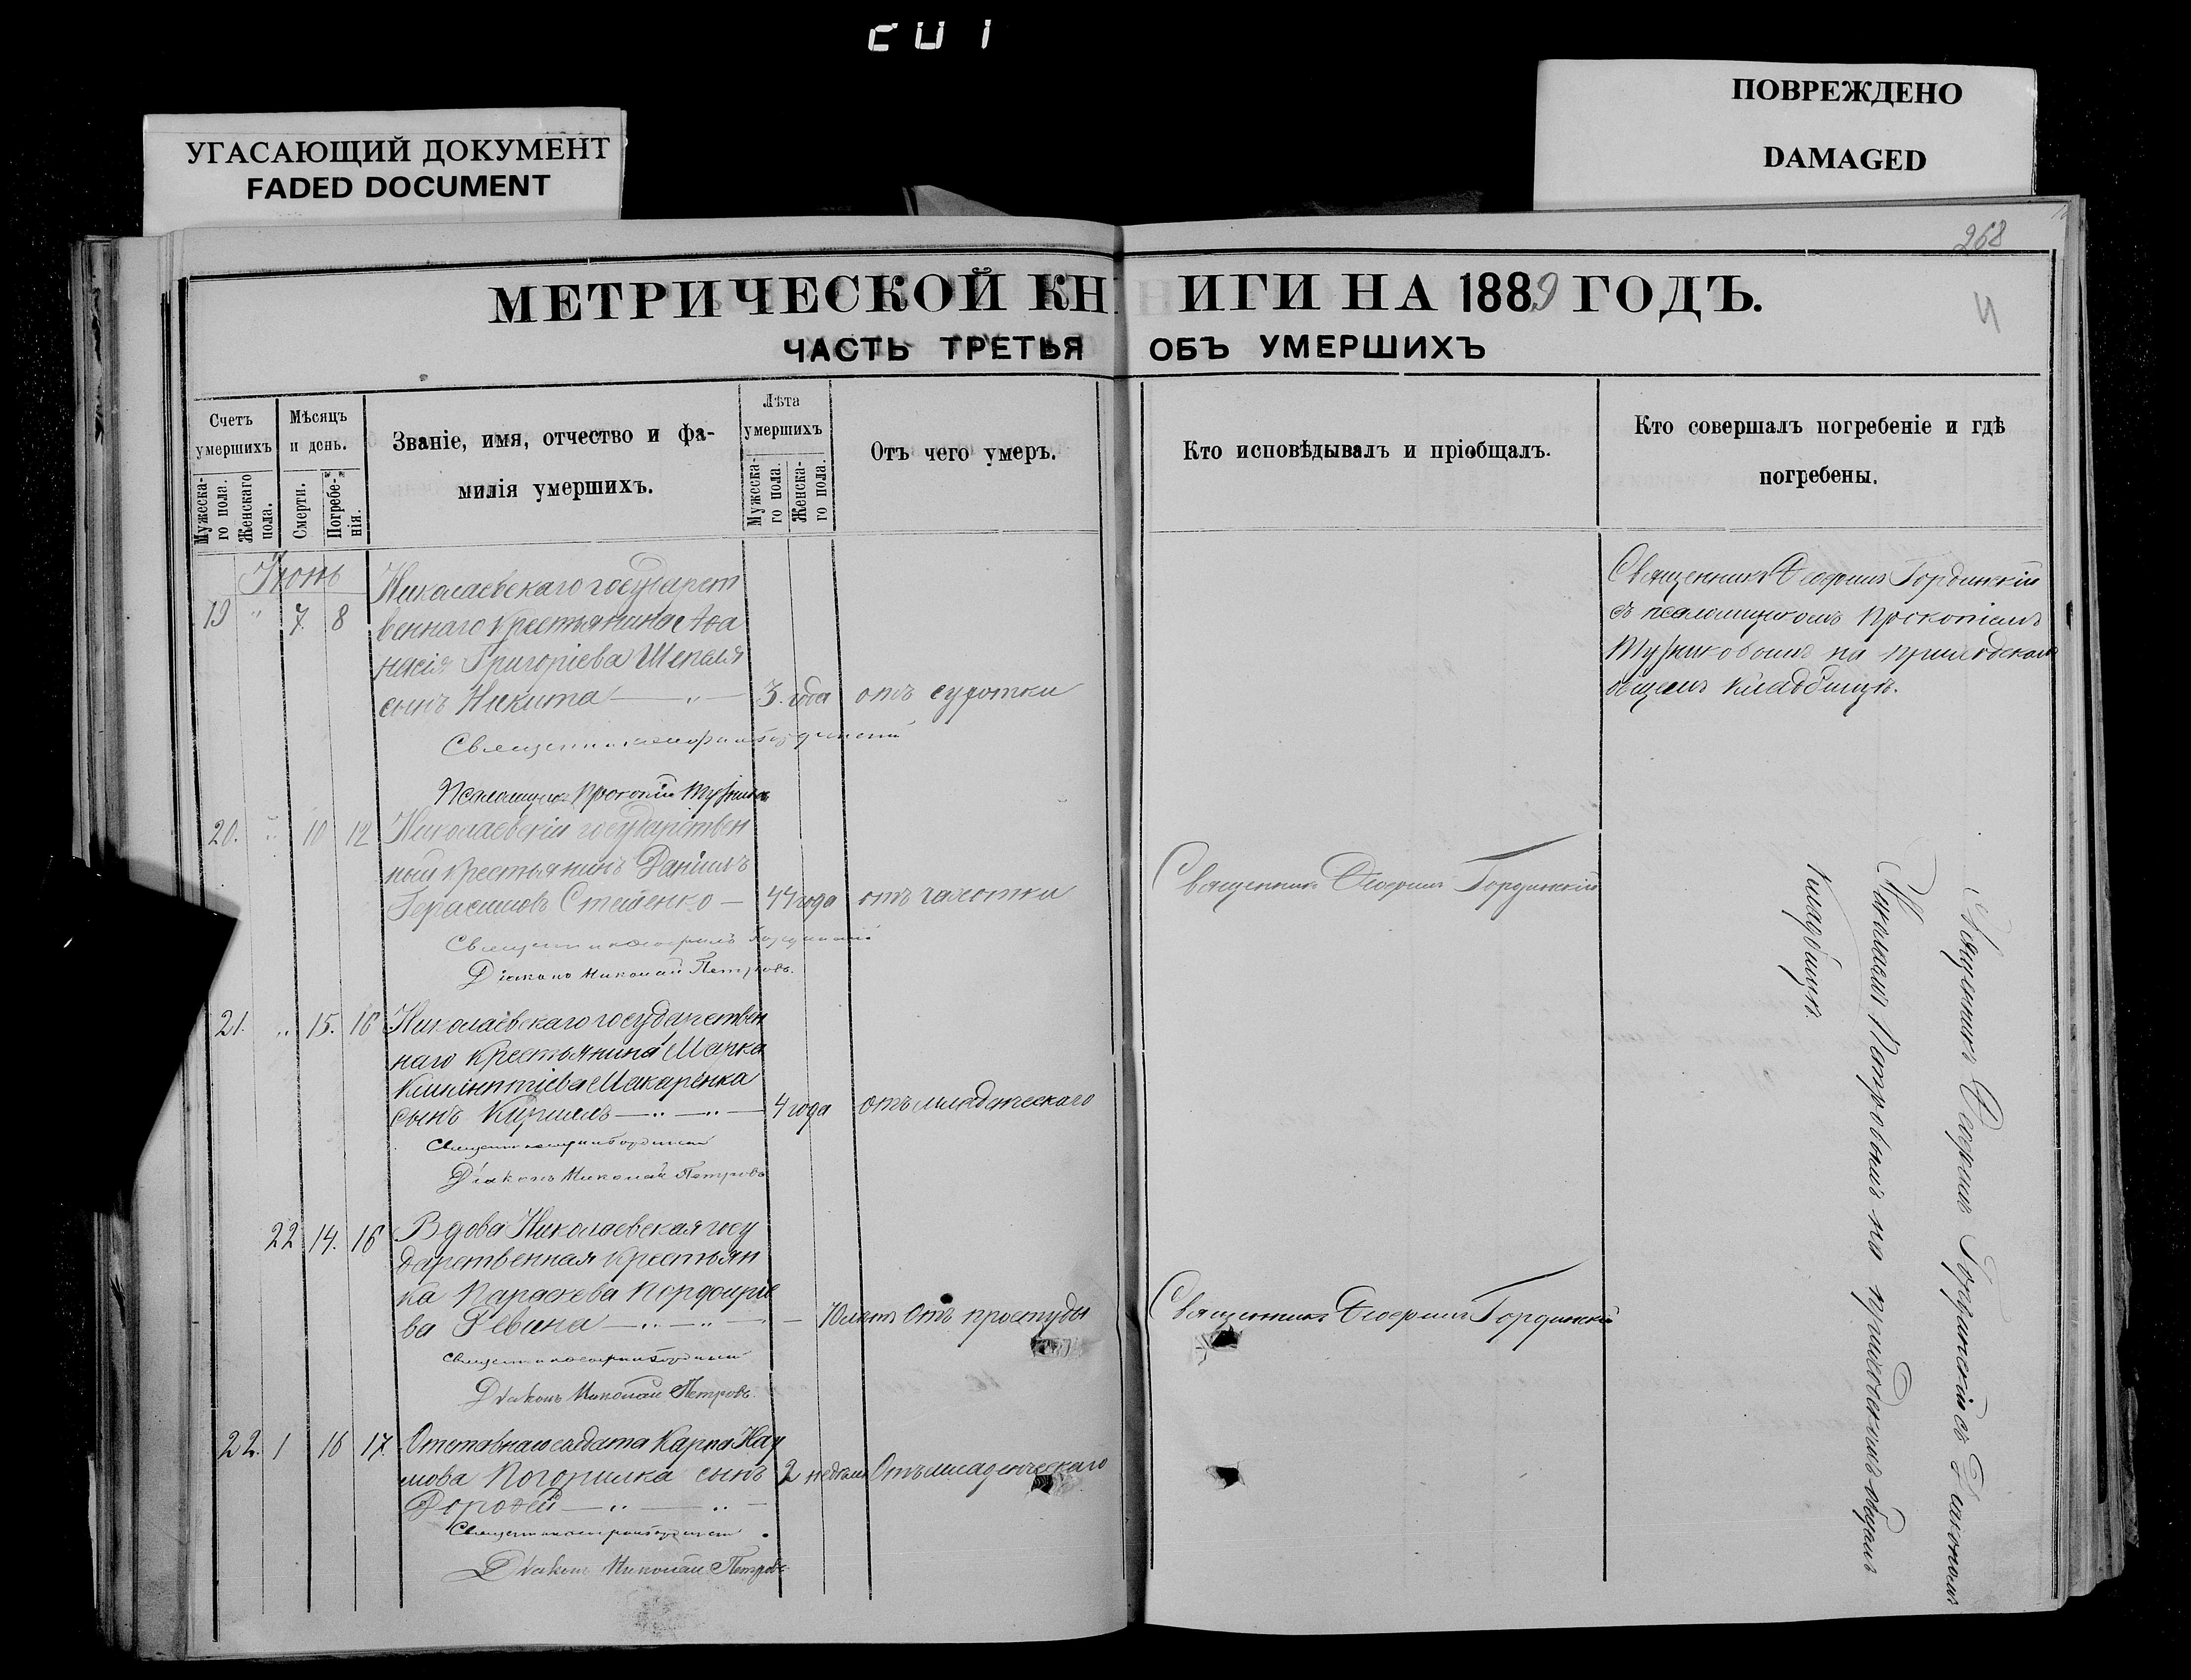 УГАСАЮЩИЙ ДОКУМЕНТ
FADED DOCUMENT
ПОВРЕЖДЕНО
DAMAGED
268
МЕТРИЧЕСКОЙ КНИГИ НА 1889 ГОДЪ.
ЧАСТЬ ТРЕТЬЯ ОБЪ УМЕРШИХЪ
Счетъ умершихъ
Мужеска-го пола.
Женскаго пола.
Мѣсяцъ и день.
Смерти.
Погребе-нія.
Званіе, имя, отчество и фа-
милія умершихъ.
Лѣта умершихъ
Мужеска-го пола.
Женска-го пола.
Отъ чего умеръ.
Кто исповѣдывалъ и пріобщалъ.
Кто совершалъ погребеніе и гдѣ
погребены.
Іюнь
19 " 7. 8
Николаевскаго государст
веннаго крестьянина Аѳа
насія Григоріева
сынъ Никита — " — 3. года отъ сухотки
Священникъ Гординскій
Псаломщикъ Прокопій
Священникъ Ѳеофилъ Гординскій
съ псаломщикомъ Прокопіемъ
на приходскомъ
общемъ кладбищѣ.
20. " 10 12
Николаевскій государствен
ный крестьянинъ Даніилъ
Герасимовъ — 44 года отъ чахотки
Священникъ Гординскій
Діаконъ Николай Петровъ.
Священникъ Ѳеофилъ Гординскій
21. " 15. 16
Николаевскаго государствен
наго крестьянина Марка
Макаренка
сынъ Кириллъ — " — " — 4 года отъ младенческаго
Священникъ Гординскій
Діаконъ Николай Петровъ
22 14. 16
Вдова Николаевская госу
дарственная крестьян
ка Параскева Порфиріе
ва Ревина — " — " — Отъ простуды
Священникъ Гординскій
Діаконъ Николай Петровъ.
Священникъ Ѳеофилъ Гординскій
22. 1 16 17.
Отставнаго солдата Карпа Нау
мова Погорилка сынъ 2 недѣли Отъ младенческаго
Дороѳей — " — " —
Священникъ Гординскій
Діаконъ Николай Петровъ
Священникъ Ѳеофилъ Гординскій съ Діакономъ
Николаемъ Петровымъ на приходскомъ общемъ
кладбищѣ.